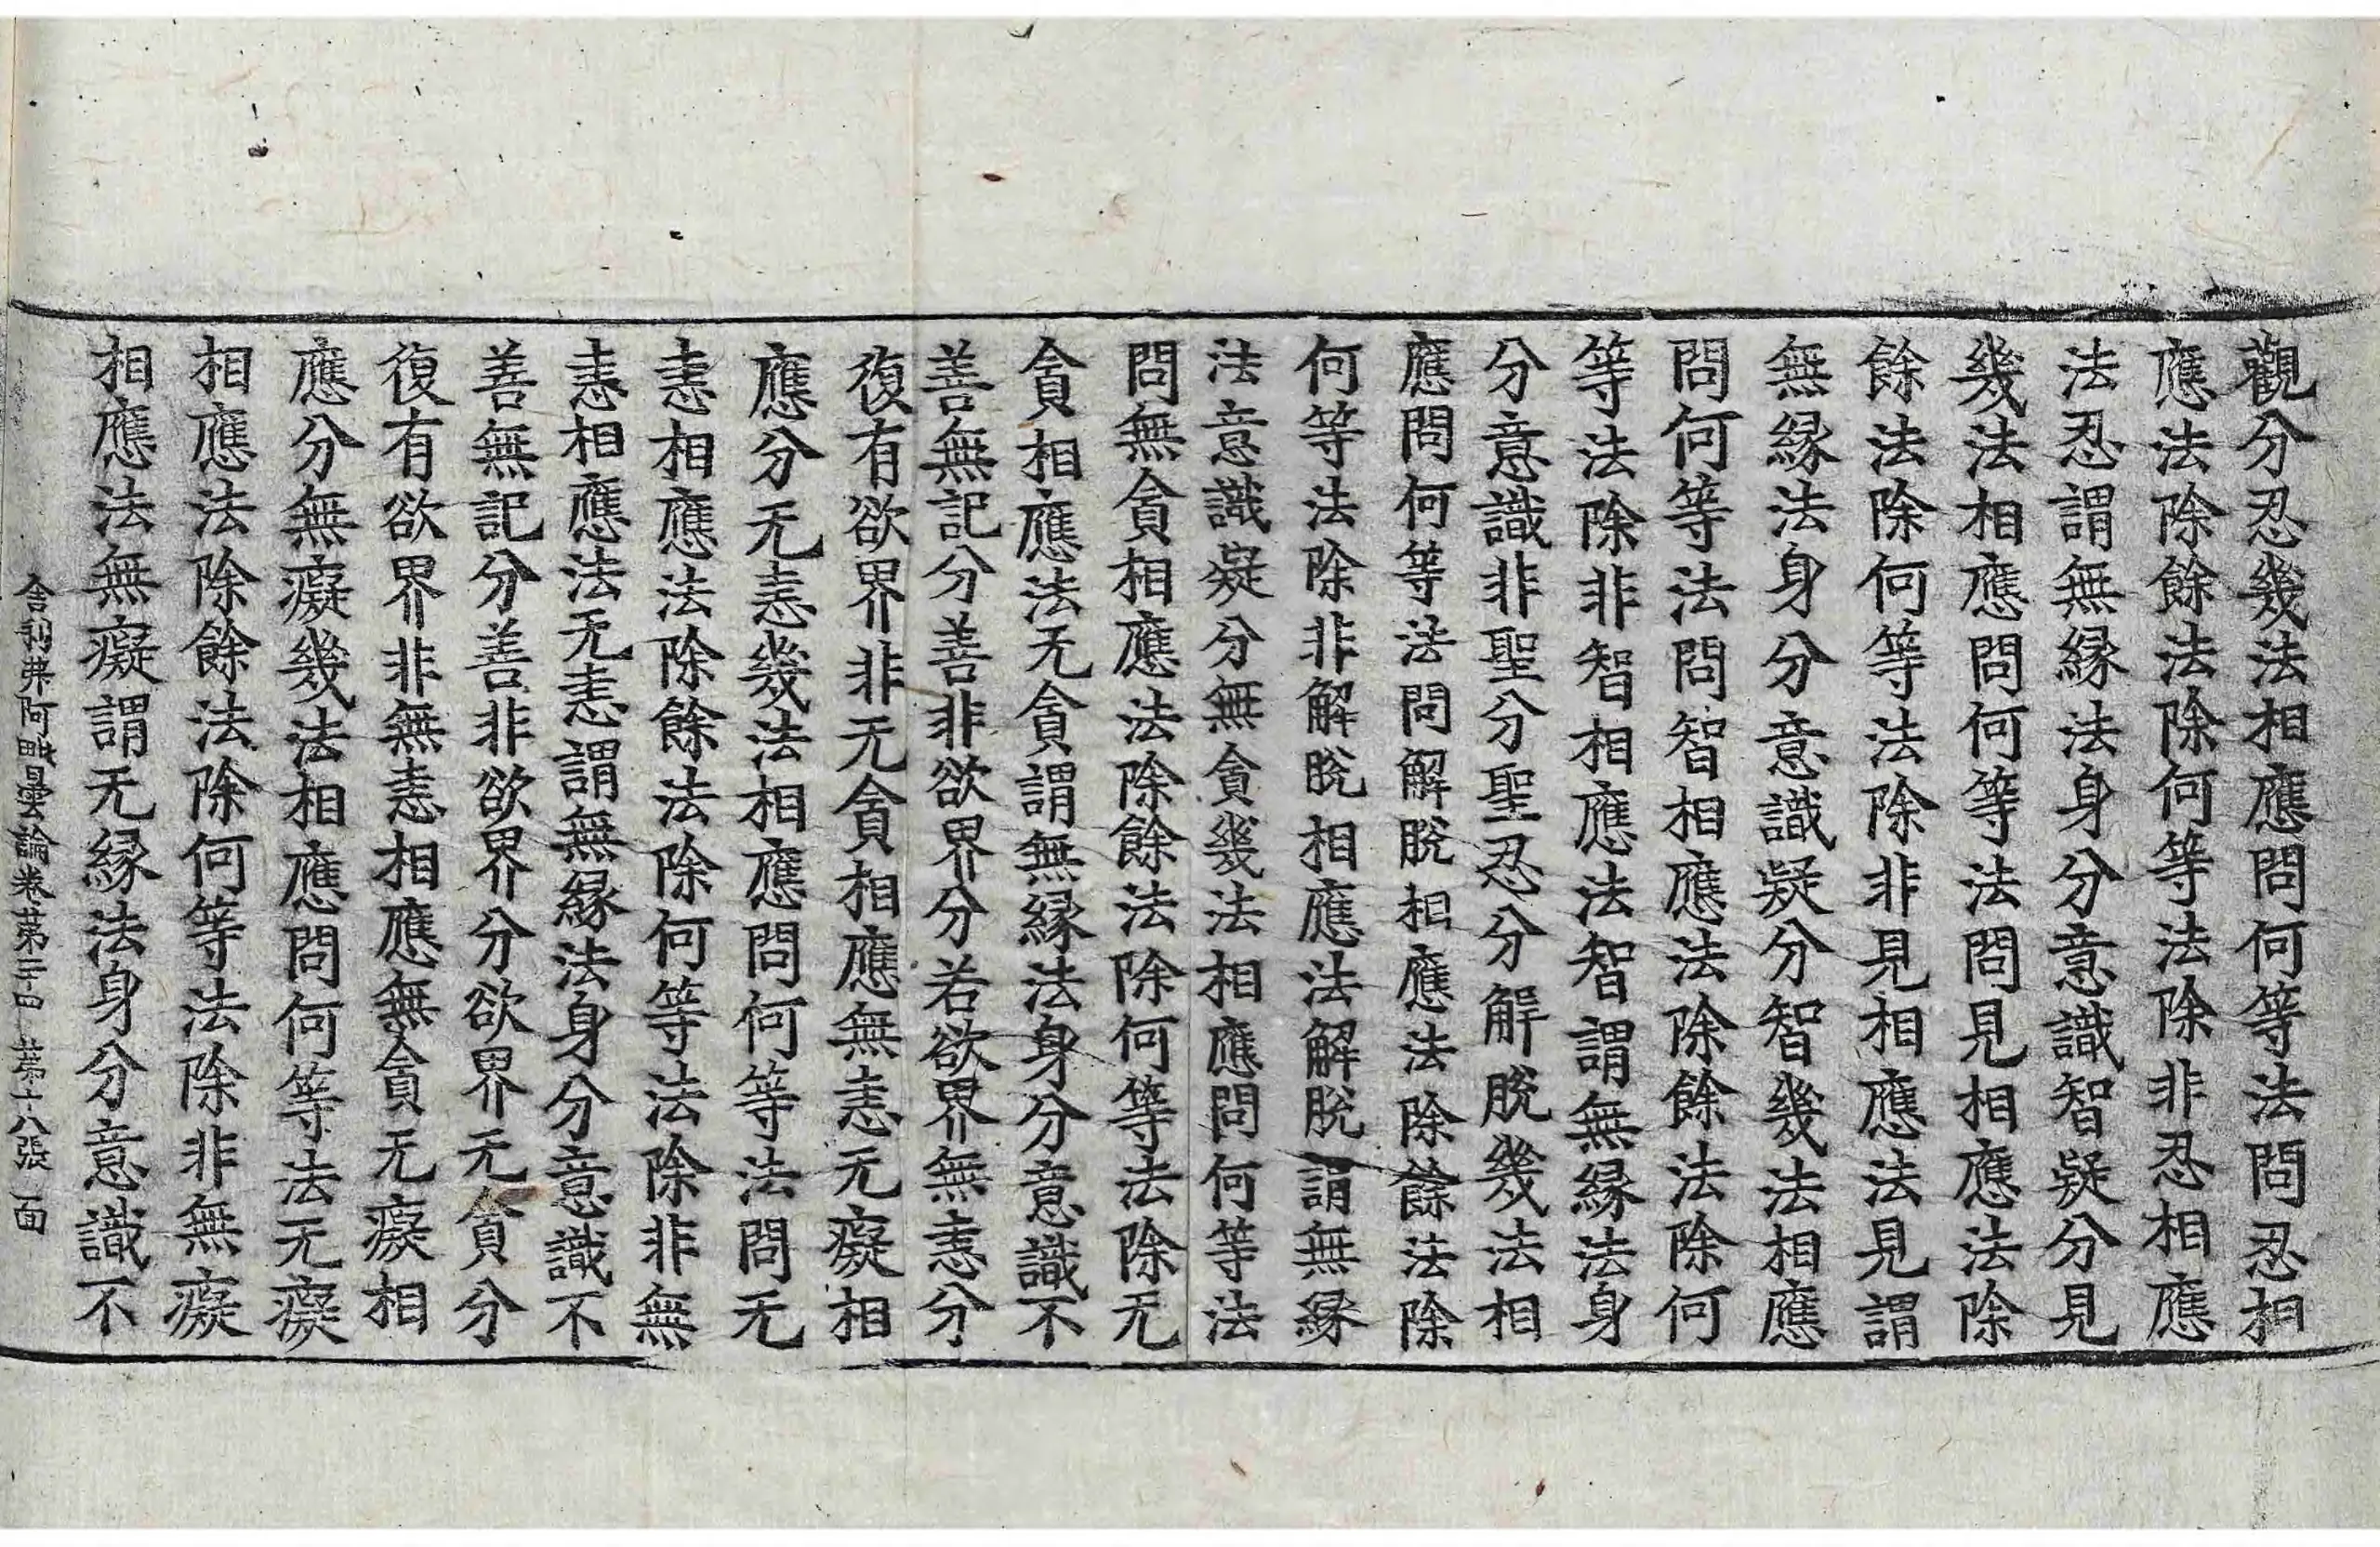 觀分忍幾法相應問何等法問忍相
應法除餘法除何等法除非忍相應
法忍謂無緣法身分意識智疑分見
幾法相應問何等法問見相應法除
餘法除何等法除非見相應法見謂
無緣法身分意識疑分智幾法相應
問何等法問智相應法除餘法除何
等法除非智相應法智謂無緣法身
分意識非聖分聖忍分解脫幾法相
應問何等法問解脫相應法除餘法除
何等法除非解脫相應法解脫謂無緣
法意識疑分無貪幾法相應問何等法
問無貪相應法除餘法除何等法除无
貪相應法无貪謂無緣法身分意識不
善無記分善非欲界分若欲界無恚分
復有欲界非无貪相應無恚无癡相
應分无恚幾法相應問何等法問无
恚相應法除餘法除何等法除非無
恚相應法无恚謂無緣法身分意識不
善無記分善非欲界分欲界无貪分
復有欲界非無恚相應無貪无癡相
應分無癡幾法相應問何等法无癡
相應法除餘法除何等法除非無癡
相應法無癡謂无緣法身分意識不
舍利弗阿毗曇論卷第二十四 第十八張 面